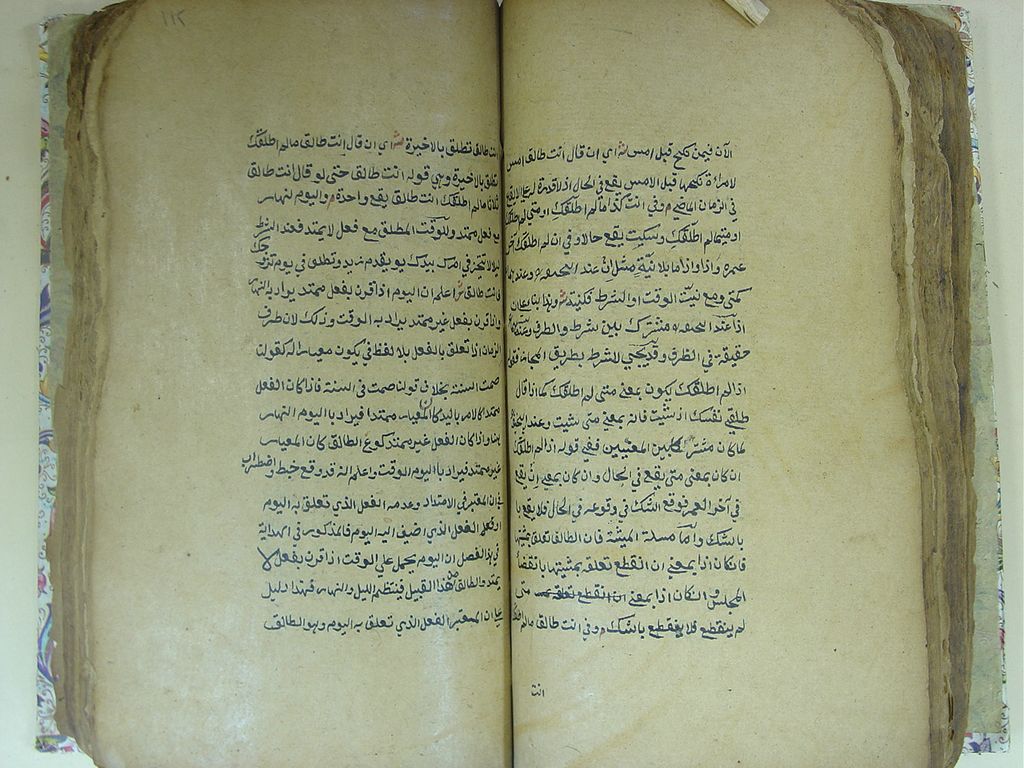 الآن فيمن نكح قبل امس ش اي ان قال انت طالق امس
لامرأة نكحها قبل الامس يقع في الحال اذ لا قدرة له على الايقاع
في الزمان الماضي م وفي انت كذا ما لم اطلقك او متى لم اطلقك
او متى ما لم اطلقك وسكت يقع حالا وفي ان لم اطلقك آخر
عمره واذا واذا ما بلا نية مثل ان عند ابي حنيفة وعندهما
كمتى ومع نية الوقت او الشرط فكنيته ش وهذا بناء على ان
اذا عند ابي حنيفة مشترك بين شرط والظرف وعندهما
حقيقة في الظرف وقد يجيء للشرط بطريق المجاز فقوله
اذا لم اطلقك يكون بمعنى متى لم اطلقك كما اذا قال
طلقي نفسك اذا شئت فانه بمعنى متى شئت وعند ابي حنيفة
لما كان مشتركا بين المعنيين ففي قوله اذا لم اطلقك
ان كان بمعنى متى يقع في الحال وان كان بمعنى ان يقع
في آخر العمر فوقع الشك في وقوعه في الحال فلا يقع با
بالشك واما مسئلة المشية فان الطالق تعلق بمشيتها
فان كان اذا بمعنى ان انقطع تعلقه بمشيتها بانقضاء
المجلس وان كان اذا بمعنى متى
لم ينقطع فلا ينقطع بالشك م وفي انت طالق ما لم اطلقك
انت
انت طالق تطلق بالاخيرة ش اي ان قال انت طالق ما لم اطلقك
تطلق بالاخيرة وهي قوله انت طالق حتى لو قال انت طالق
ثلاثا ما لم اطلقك انت طالق يقع واحدة م واليوم لنهار
مع فعل ممتد وللوقت المطلق مع فعل لا يمتد فعند الشرط
ليلا لا يتخير في امرك بيدك يوم يقدم زيد وتطلق في يوم اتزوجك
فانت طالق ش اعلم ان اليوم اذا قرن بفعل ممتد يراد به النهار
واذا قرن بفعل غير ممتد يراد به الوقت وذلك لان ظرف
الزمان اذا تعلق بالفعل بلا لفظ في يكون معيارا له كقولك
صمت السنة بخلاف قولنا صمت في السنة فاذا كان الفعل
ممتدا كالامر باليد كان المعيار ممتدا فيراد باليوم النهار
هنا واذا كان الفعل غير ممتد كوقوع الطالق كان المعيار
غير ممتد فيراد باليوم الوقت واعلم انه قد وقع خبط واضطراب
في ان المعتبر في الامتداد وعدمه الفعل الذي تعلق به اليوم
او الفعل الذي اضيف اليه اليوم فالمذكور في الهداية
في هذا الفصل ان اليوم يحمل على الوقت اذا قرن بفعل لا
يمتد والطالق من هذا القبيل فينتظم الليل والنهار فهذا دليل
على ان المعتبر الفعل الذي تعلق به اليوم وهو الطالق
١١٢